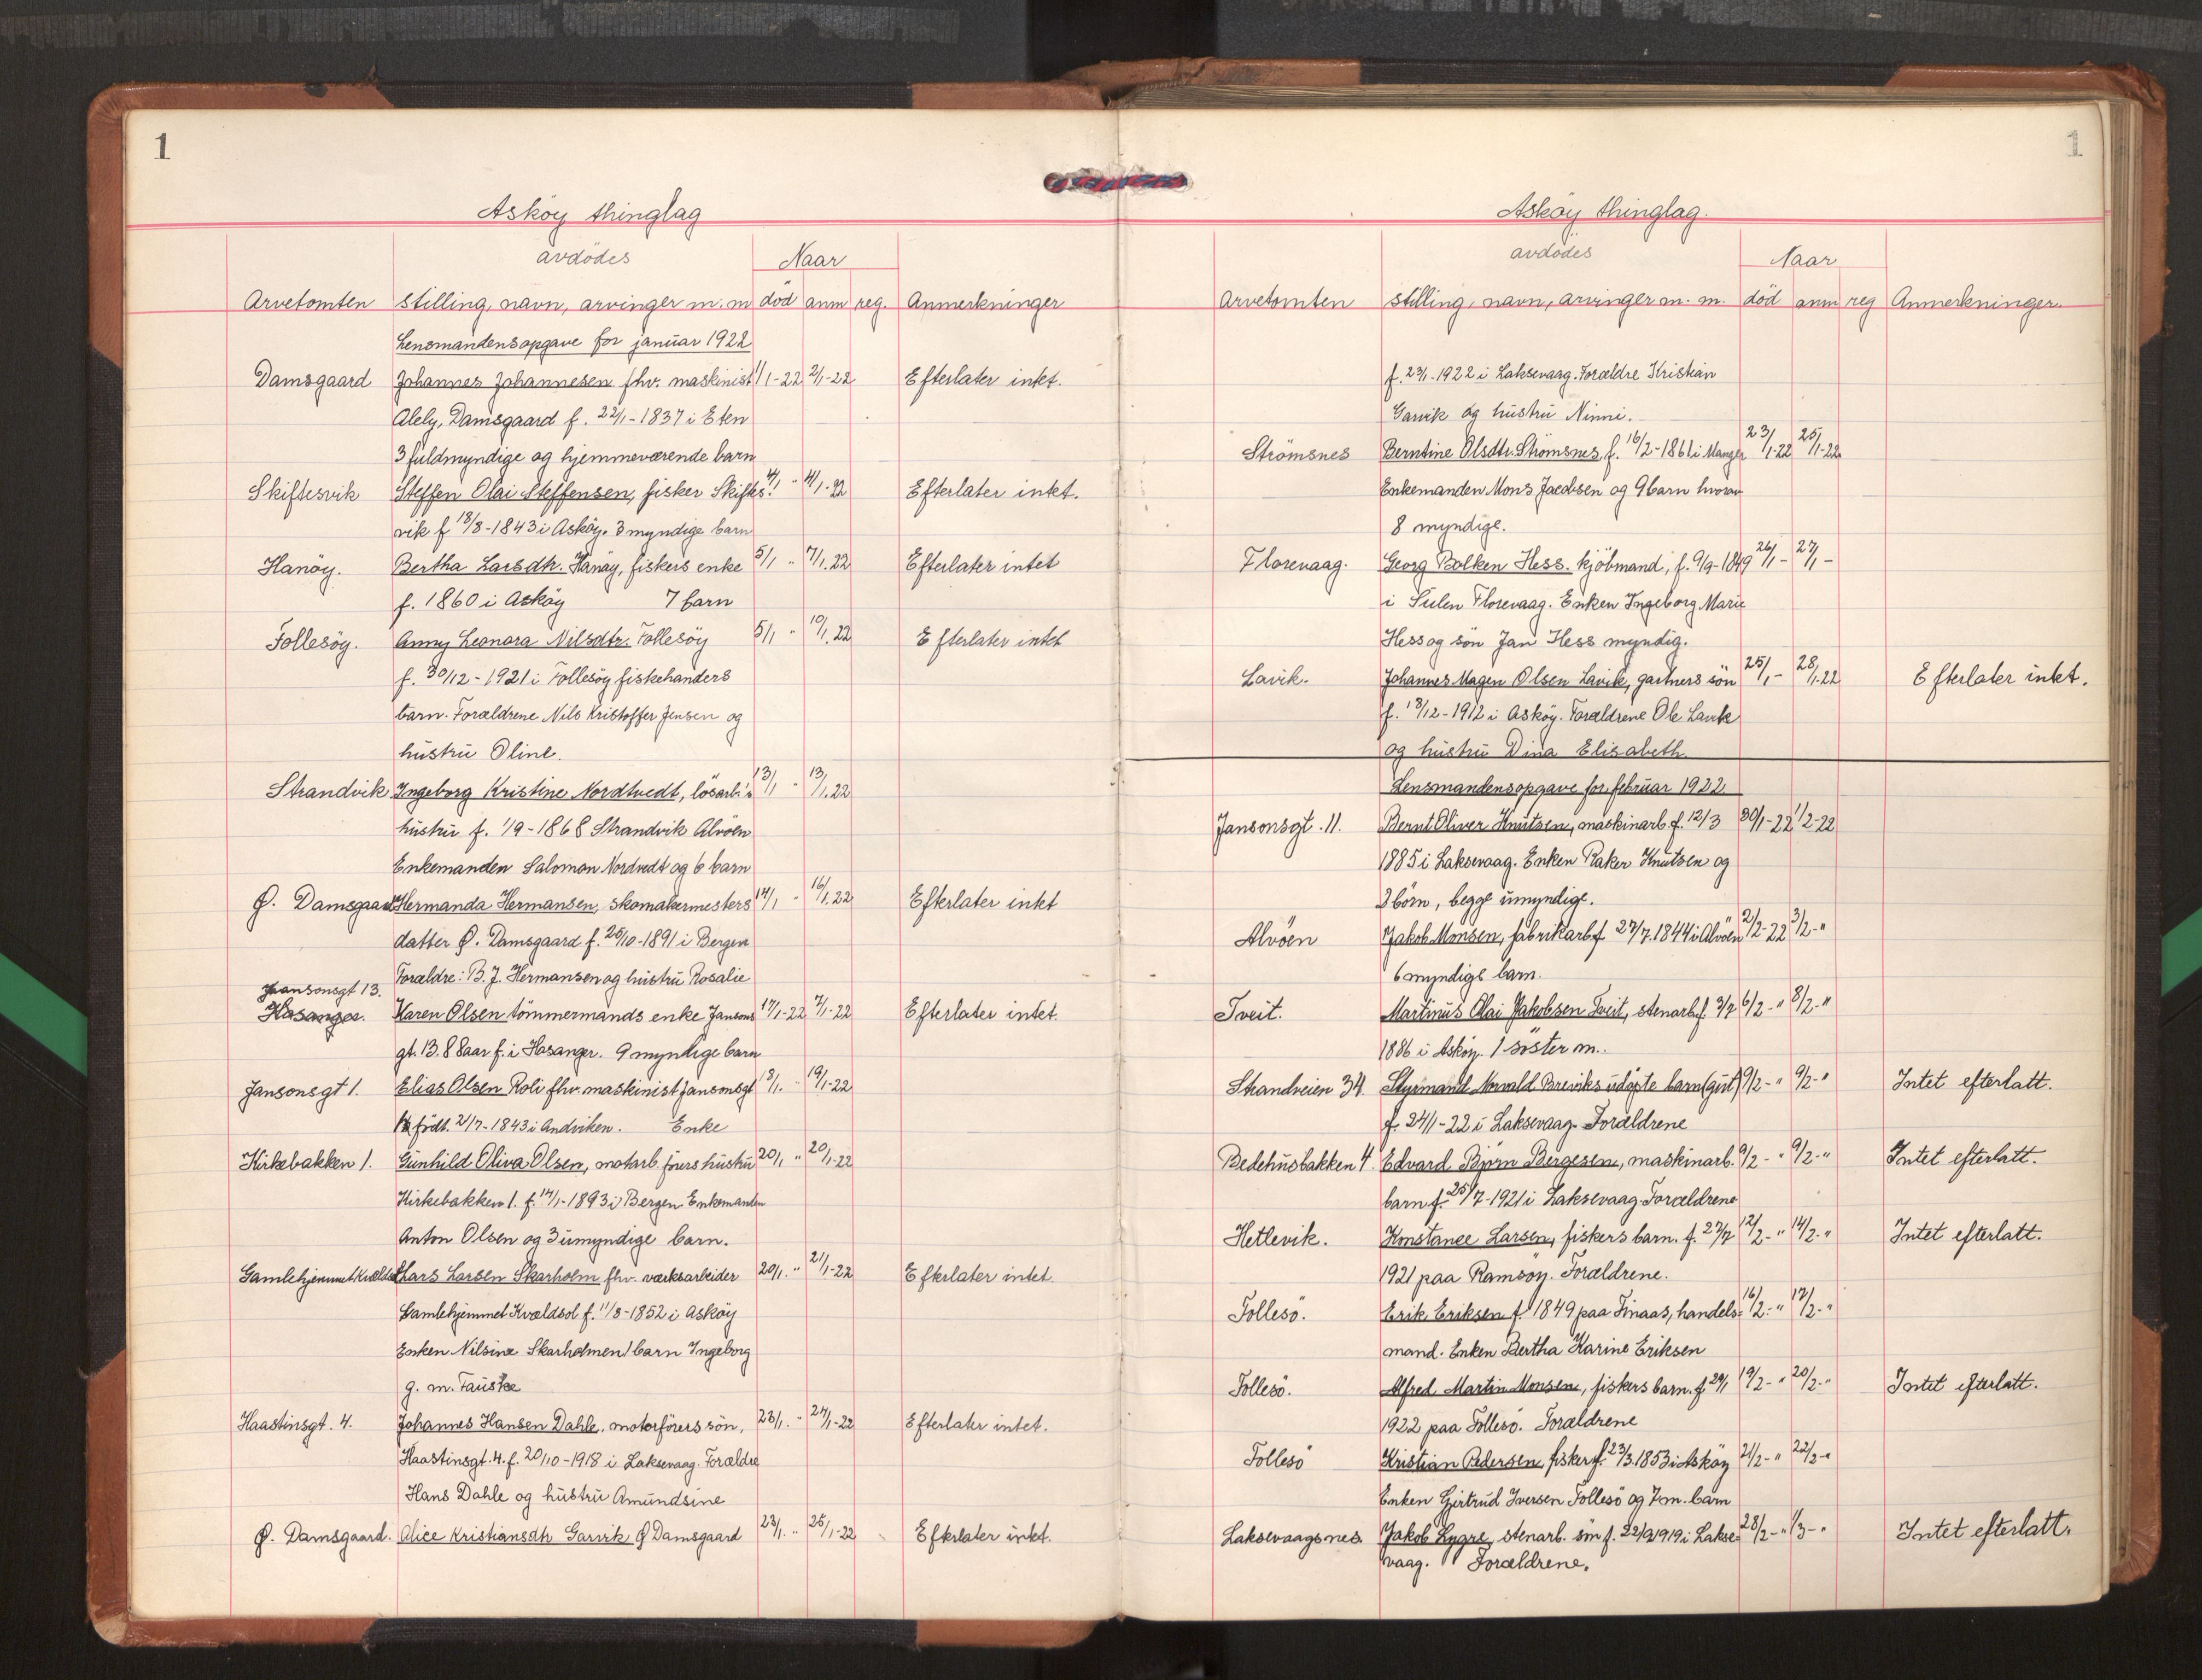 1
Asköy thinglag
avdödes
Naar
Arvetomten stilling, navn, arvinger m. m död anm reg. Anmerkninger
Lensmandensopgave for januar 1922
Damsgaard Johannes Johannesen fhv. maskinist 1/1-22 2/1-22 Efterlater intet.
Alely, Damsgaard f. 22/1-1837 i Eten
3 fuldmyndige og hjemmeværende barn
Skiftesvik Steffen Olai Steffensen, fisker Skiftes: 4/1 " 4/1-22 Efterlater intet.
vik f 18/8-1843 i Asköy. 3 myndige barn
Hanöy. Bertha Larsdtr. Hanöy, fiskers enke 5/1 " 7/1.22 Efterlater intet
f. 1860 i Asköy 7 barn
Follesöy. Anny Leonora Nilsdtr. Follesöy 5/1 " 10/1.22 Efterlater intet
f. 30/12-1921 i Follesöy fiskehanders
barn. Forældrene Nils Kristoffer Jensen og
hustru Oline.
Strandvik Ingeborg Kristine Nordtvedt, lösarb.'s 13/1 " 13/1.22
hustru f. 1/9-1868 Strandvik Alvöen
Enkemanden Salomon Nordvedt og 6 barn
Ø. Damsgaard Hermanda Hermansen, skomakermesters 14/1 " 16/1.22 Efterlater intet
datter Ø. Damsgaard f. 25/10-1891 i Bergen
Forældre: B. J. Hermansen og hustru Rosalie
Jansonsgt 13.
Hosanger. Karen Olsen tömmermands enke Jansons 17/1-22 7/1-22 Efterlater intet.
gt. 13. 88 aar f. i Hosanger. 9 myndige barn
Jansonsgt 1. Elias Olsen Roli fhv. maskinist Jansonsgt 18/1. " 19/1-22
födt. 2/7-1843 i Andviken. Enke
Kirkebakken 1. Gunhild Oliva Olsen, motorb. föers hustru 20/1 " 20/1-22
Kirkebakken 1. f. 14/1-1893 i Bergen Enkemanden
Anton Olsen og 3 umyndige barn.
Gamlehjemmet Kvældsol Lars Larsen Skarholm fhv. værksarbeider 20/1. " 21/1-22 Efterlater intet.
Gamlehjemmet Kvældsol f. 11/8-1852 i Asköy
Enken Nilsine Skarholmen 1 barn Ingeborg
g. m. Fauske
Haastinsgt. 4. Johannes Hansen Dahle, motorförers sön, 23/1. " 24/1-22 Efterlater intet.
Haastinsgt. 4. f. 20/10-1918 i Laksevaag. Forældre
Hans Dahle og hustru Amundsine
Ø. Damsgaard. Alice Kristiansdtr Garvik Ø Damsgaard 23/1. " 25/1-22 Efterlater intet.
1
Asköy thinglag.
avdödes
Naar
Arvetomten stilling, navn, arvinger m. m. död anm reg Anmerkninger.
f. 23/1-1922 i Laksevaag. Forældre Kristian
Garvik og hustru Ninni.
Strömsnes Berntine Olsdtr. Strömsnes, f. 16/2-1861 i Manger 23/1-22 25/1-22
Enkemanden Mons Jacobsen og 9 barn hvorav
8 myndige.
Florevaag. Georg Bolken Hess. kjöbmand, f. 9/9-1849 26/1- 27/1-
i Sulen Florevaag. Enken Ingeborg Marie
Hess og sön Jan Hess myndig.
Lavik. Johannes Magen Olsen Lavik, gartners sön 25/1- 28/1.22 Efterlater intet.
f. 18/12-1912 i Asköy. Forældrene Ole Lavik
og hustru Dina Elisabeth
Lensmandensopgave for februar 1922
Jansonsgt. 11. Bernt Oliver Knutsen, maskinarb. f. 12/3 30/1-22 1/2-22
1885 i Laksevaag. Enken Raker Knutsen og
2 börn, begge umyndige.
Alvöen Jakob Monsen, fabrikarb. f 27/7.1844 i Alvöen 2/2-22 3/2-"
6 myndige barn.
Tveit. Martinus Olai Jakobsen Tveit, stenarb. f. 3/7 6/2-" 8/2-"
1886 i Asköy. 1 söster m..
Strandveien 34. Styrmand Norvald Breviks udöpte barn (gut) 9/2-" 9/2-" Intet efterlatt.
f. 24/1-22 i Laksevaag- Forældrene
Bedehusbakken 4. Edvard Björn Bergesen, maskinarb. 9/2-" 9/2-" Intet efterlatt.
barn f. 25/7-1921 i Laksevaag- Forældrene
Hetlevik. Konstance Larsen, fiskers barn. f. 27/7 12/2-" 14/2-" Intet efterlatt.
1921 paa Ramsöy. Forældrene.
Follesö. Erik Eriksen f. 1849 paa Finaas, handels= 16/2-" 17/2-"
mand. Enken Bertha Karine Eriksen
Follesö. Alfred Martin Monsen, fiskers barn. f 29/1 19/2-" 20/2-" Intet efterlatt.
1922 paa Follesö. Forældrene
Follesö Kristian Pedersen, fisker f. 23/3.1853 i Asköy 21/2-" 22/2-"
Enken Gjertrud Iversen Follesö og 7 m. barn
Laksevaagsnes. Jakob Lygre, stenarb. sön f. 22/9 1919 i Lakse= 28/2-" 1/3-" Intet efterlatt.
vaag. Forældrene.